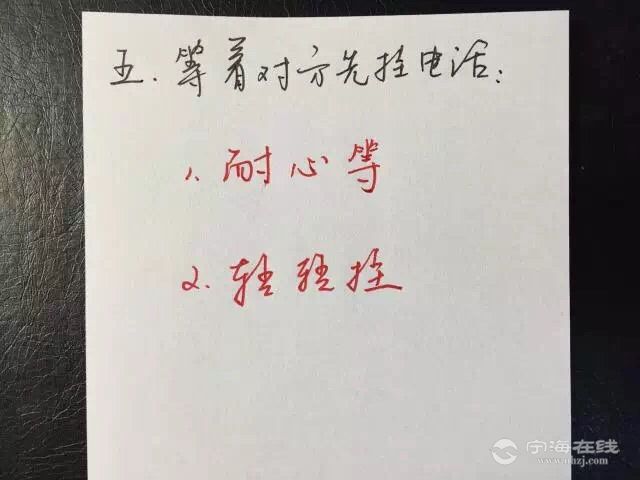 五.等着对方先挂电话:
1.耐心等
2.轻轻挂
宁海在线
www.nhzj.com